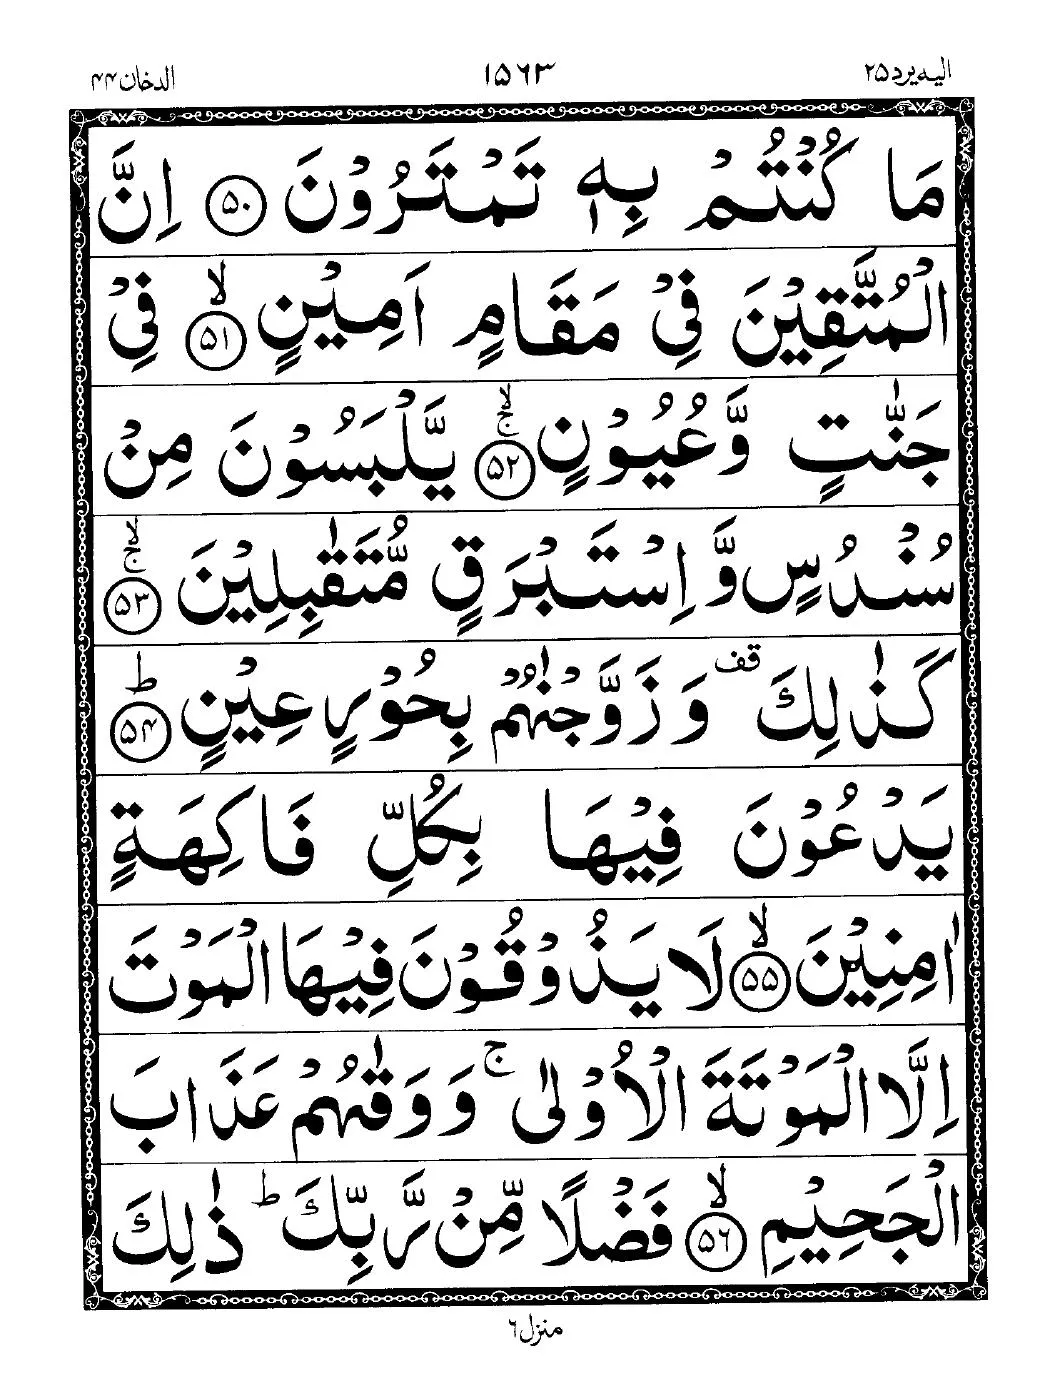 الیه یرد ۲۵ ۱۵۶۳ الدخان ۴۴
مَا كُنْتُمْ بِهٖ تَمْتَرُوْنَ ۵۰ اِنَّ
الْمُتَّقِيْنَ فِيْ مَقَامٍ اَمِيْنٍ ۙ ۵۱ فِيْ
جَنّٰتٍ وَّعُيُوْنٍ ۚۙ ۵۲ يَّلْبَسُوْنَ مِنْ
سُنْدُسٍ وَّاِسْتَبْرَقٍ مُّتَقٰبِلِيْنَ ۚۙ ۵۳
كَذٰلِكَ قف وَزَوَّجْنٰهُمْ بِحُوْرٍ عِيْنٍ ؕ ۵۴
يَدْعُوْنَ فِيْهَا بِكُلِّ فَاكِهَةٍ
اٰمِنِيْنَ ۙ ۵۵ لَا يَذُوْقُوْنَ فِيْهَا الْمَوْتَ
اِلَّا الْمَوْتَةَ الْاُوْلٰى ۚ وَوَقٰىهُمْ عَذَابَ
الْجَحِيْمِ ۙ ۵۶ فَضْلًا مِّنْ رَّبِّكَ ؕ ذٰلِكَ
منزل ۶